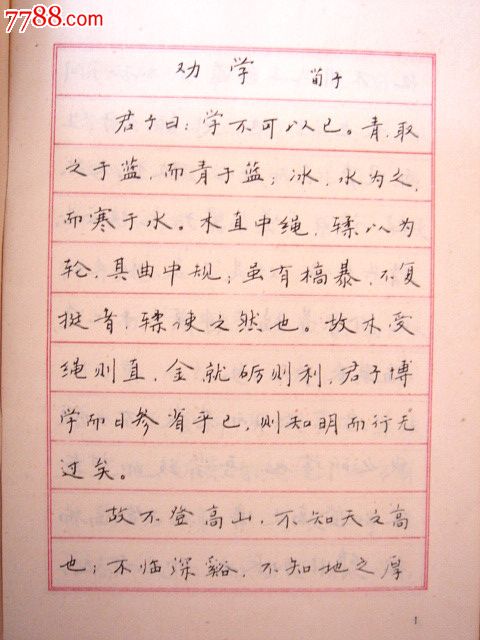 7788.com
劝学 荀子
君子曰：学不可以已。青，取
之于蓝，而青于蓝；冰，水为之，
而寒于水。木直中绳，輮以为
轮，其曲中规；虽有槁暴，不复
挺者，輮使之然也。故木受
绳则直，金就砺则利，君子博
学而日参省乎己，则知明而行无
过矣。
故不登高山，不知天之高
也；不临深谿，不知地之厚
1